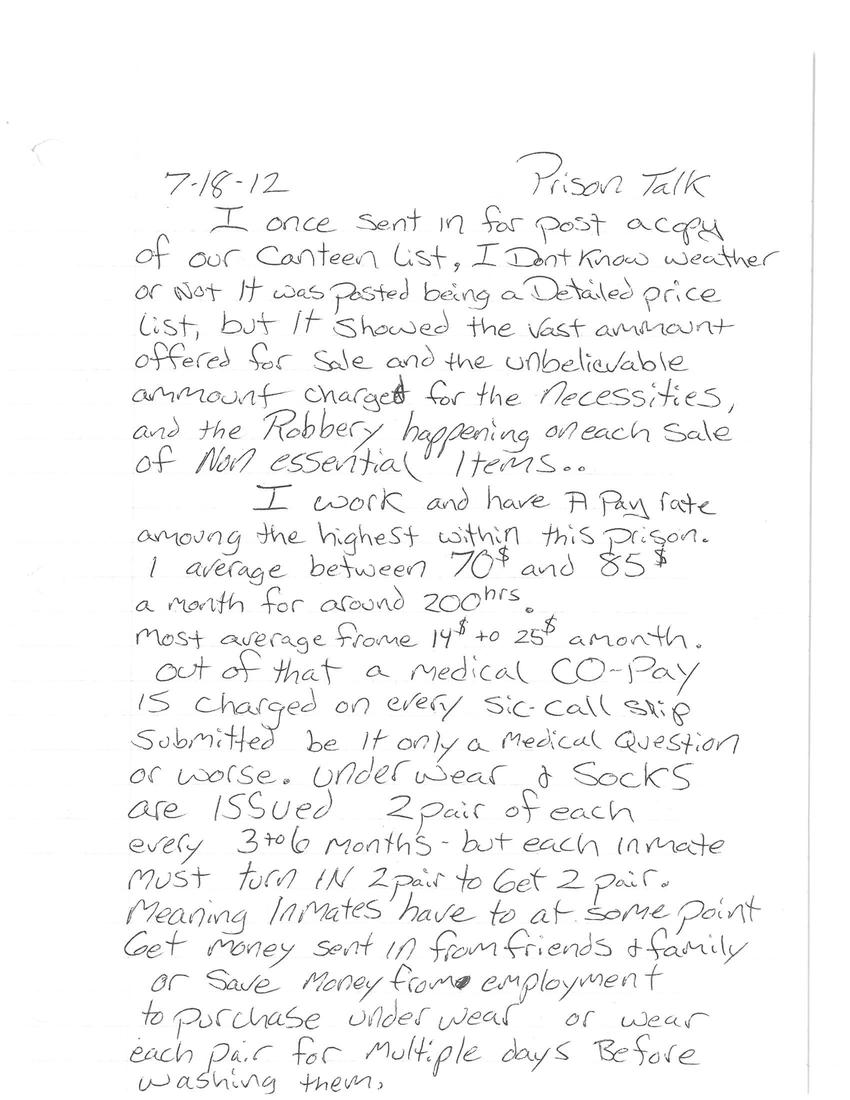 7-18-12 Prison Talk
I once sent in for post a copy
of our Canteen list, I Dont Know weather
or Not It was posted being a Detailed price
list, but It showed the vast ammount
offered for sale and the unbelievable
ammount charged for the Necessities,
and the Robbery happening on each sale
of Non essential Items..
I work and have A Pay rate
amoung the highest within this prison.
I average between 70$ and 85$
a month for around 200hrs.
Most average frome 14$ to 25$ a month.
out of that a medical CO-Pay
Is charged on every sic-call slip
submitted be It only a Medical Question
or worse. Under wear & Socks
are Issued 2 pair of each
every 3 to 6 Months - but each inmate
Must turn IN 2 pair to Get 2 pair.
Meaning Inmates have to at some point
Get Money sent in from friends & family
or Save Money from employment
to purchase under wear or wear
each pair for Multiple days Before
washing them.